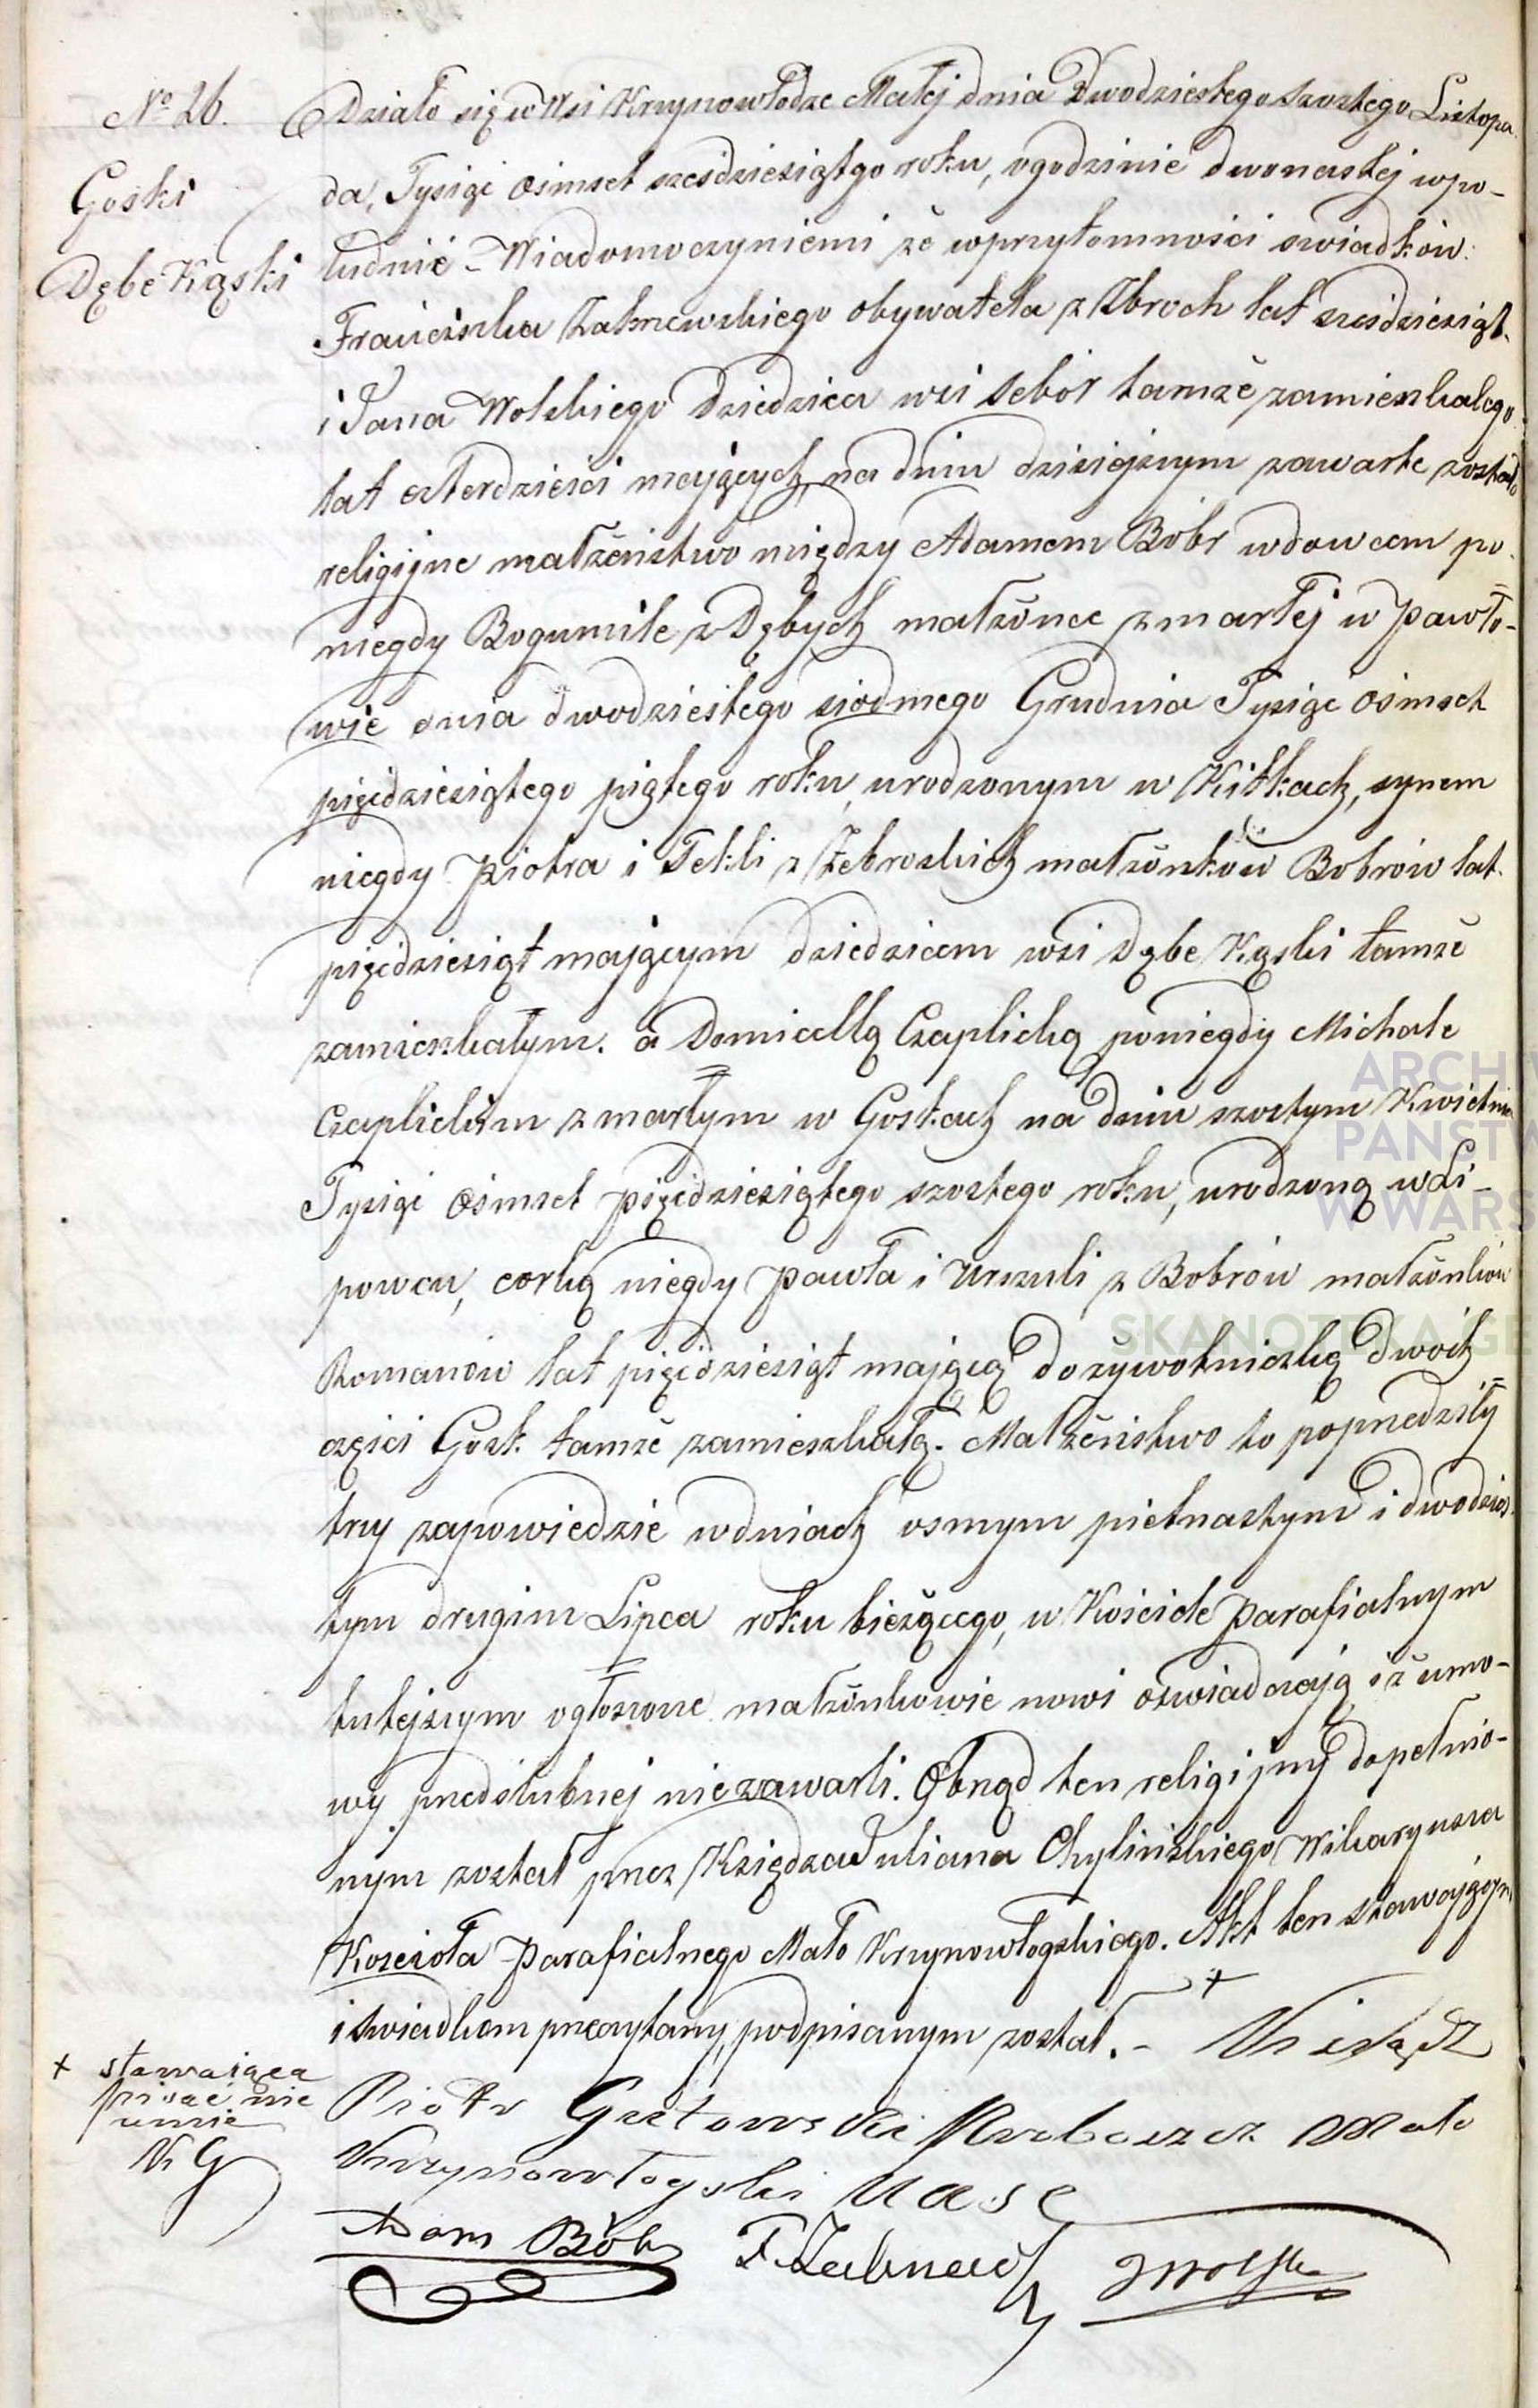 № 26.
Goski
Dębe Kąski
Działo się w Wsi Krzynowłodze Małej dnia Dwudziestego szostego Listopa
da, Tysiąc osimset szesdziesiątgo roku, o godzinie dwonastej w po-
łudnie - Wiadomo czyniemi że w przytomności swiadków:
Franciszka Zakrzewskiego obywatela z Zbroch lat szesdziesiąt
i Jana Wolskiego Dziedzica wsi Sebór tamże zamieszkałego
lat czterdzieści mających, na dniu dzisiejszym zawarte zostało
religijne małżeństwo między Adamem Bóbr wdowcem po
niegdy Bogumile z Dębych małżónce zmarłej w Pawło-
wie dnia dwodziestego siodmego Grudnia Tysiąc osimset
pięcdziesiątego piątego roku, urodzonym w Kitkach, synem
niegdy Piotra i Tekli z Żebroskich małżónków Bobrów lat
pięcdziesiąt mającym dziedzicem wsi Dębe Kąski tamże
zamieszkałym. a Domicellą Czaplicką poniegdy Michale
Czaplickim zmarłym w Goskach na dniu szostym Kwietnia
Tysiąc osimset pięcdziesiątego szostego roku, urodzoną w Li-
powcu, corką niegdy Pawła i Urszuli z Bobrów małżónków
Romanów lat pięcdziesiąt mającą dożywotniczką dwóch
części Gosk tamże zamieszkałą. Małżeństwo to poprzedziły
trzy zapowiedzie w dniach osmym pietnastym i dwodzies
tym drugim Lipca roku bieżącego, w Kościele Parafialnym
tutejszym ogłoszone małżónkowie nowi oświadczają iż umo-
wy przedślubnej nie zawarli. Obrząd ten religijny dopełnio-
nym został przez Księdza Juliana Chylińskiego Wikaryusza
Kościoła Parafialnego Mało Krzynowłogskiego. Akt ten stawającym
i swiadkom przeczytany, podpisanym został. - + Ksiądz
Piotr Gutowski Proboszcz Mało
Krzynowłogski
+ stawaiąca
pisać nie
umie
K G
Adam Bóbr F. Zakrzews J Wolski
ARCHIW
PAŃSTW
W WARS
SKANOTEKA GE